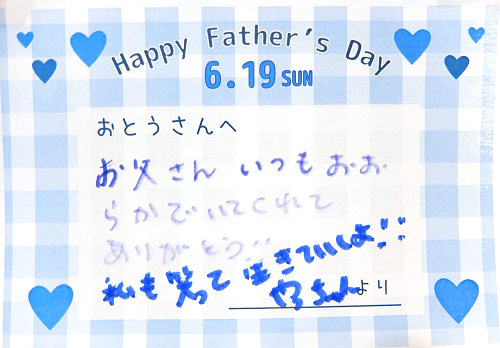 Happy Father's Day
6.19 SUN
おとうさんへ
お父さん いつもおお
らかでいてくれて
ありがとう!!
私も笑って生きていくよ!!
やっちゃんより